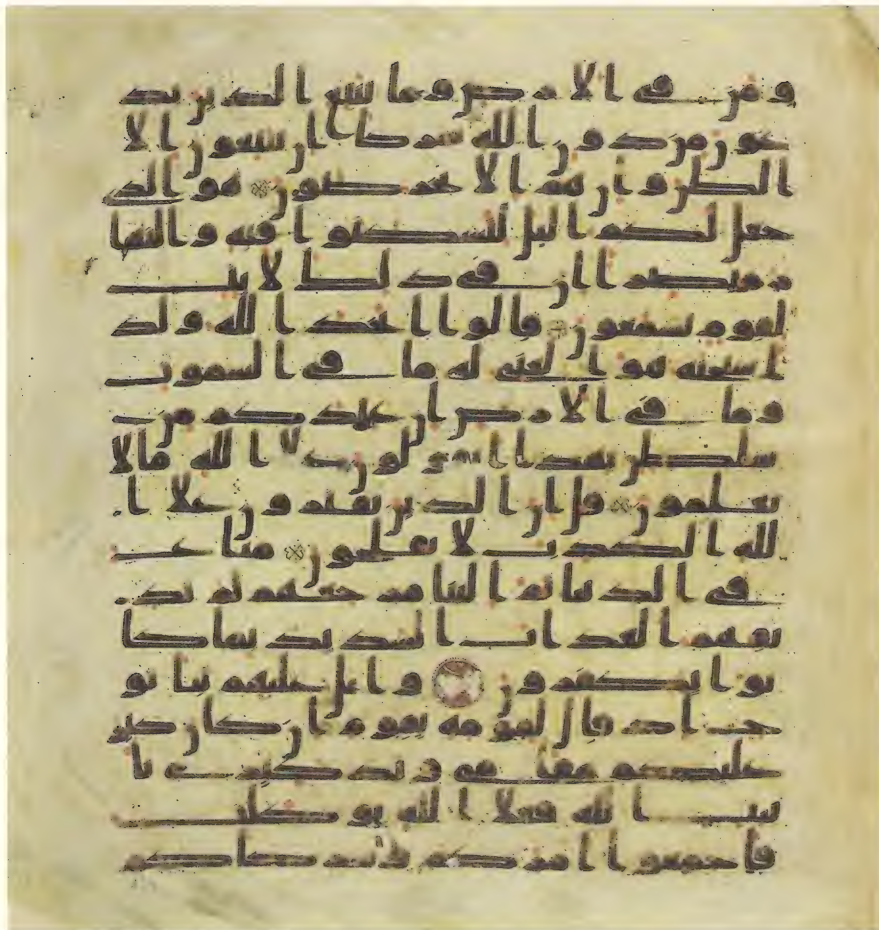 ومن في الارض وما يتبع الذين يد
عون من دون الله شركا ان يتبعون الا
الظن وان هم الا يخرصون هو الذي
جعل لكم اليل لتسكنوا فيه والنها
ر مبصرا ان في ذلك لايت
لقوم يسمعون قالوا اتخذ الله ولد
ا سبحنه هو الغني له ما في السموت
وما في الارض ان عندكم من
سلطن بهذا اتقولون علا الله ما لا
تعلمون قل ان الذين يفترون علا ا
لله الكذب لا يفلحون متاع
في الدنيا ثم الينا مرجعهم ثم نذ
يقهم العذاب الشديد بما كا
نوا يكفرون واتل عليهم نبا نو
ح اذ قال لقومه يقوم ان كان كبر
عليكم مقامي وتذكيري با
يت الله فعلا الله توكلت
فاجمعوا امركم وشركاكم